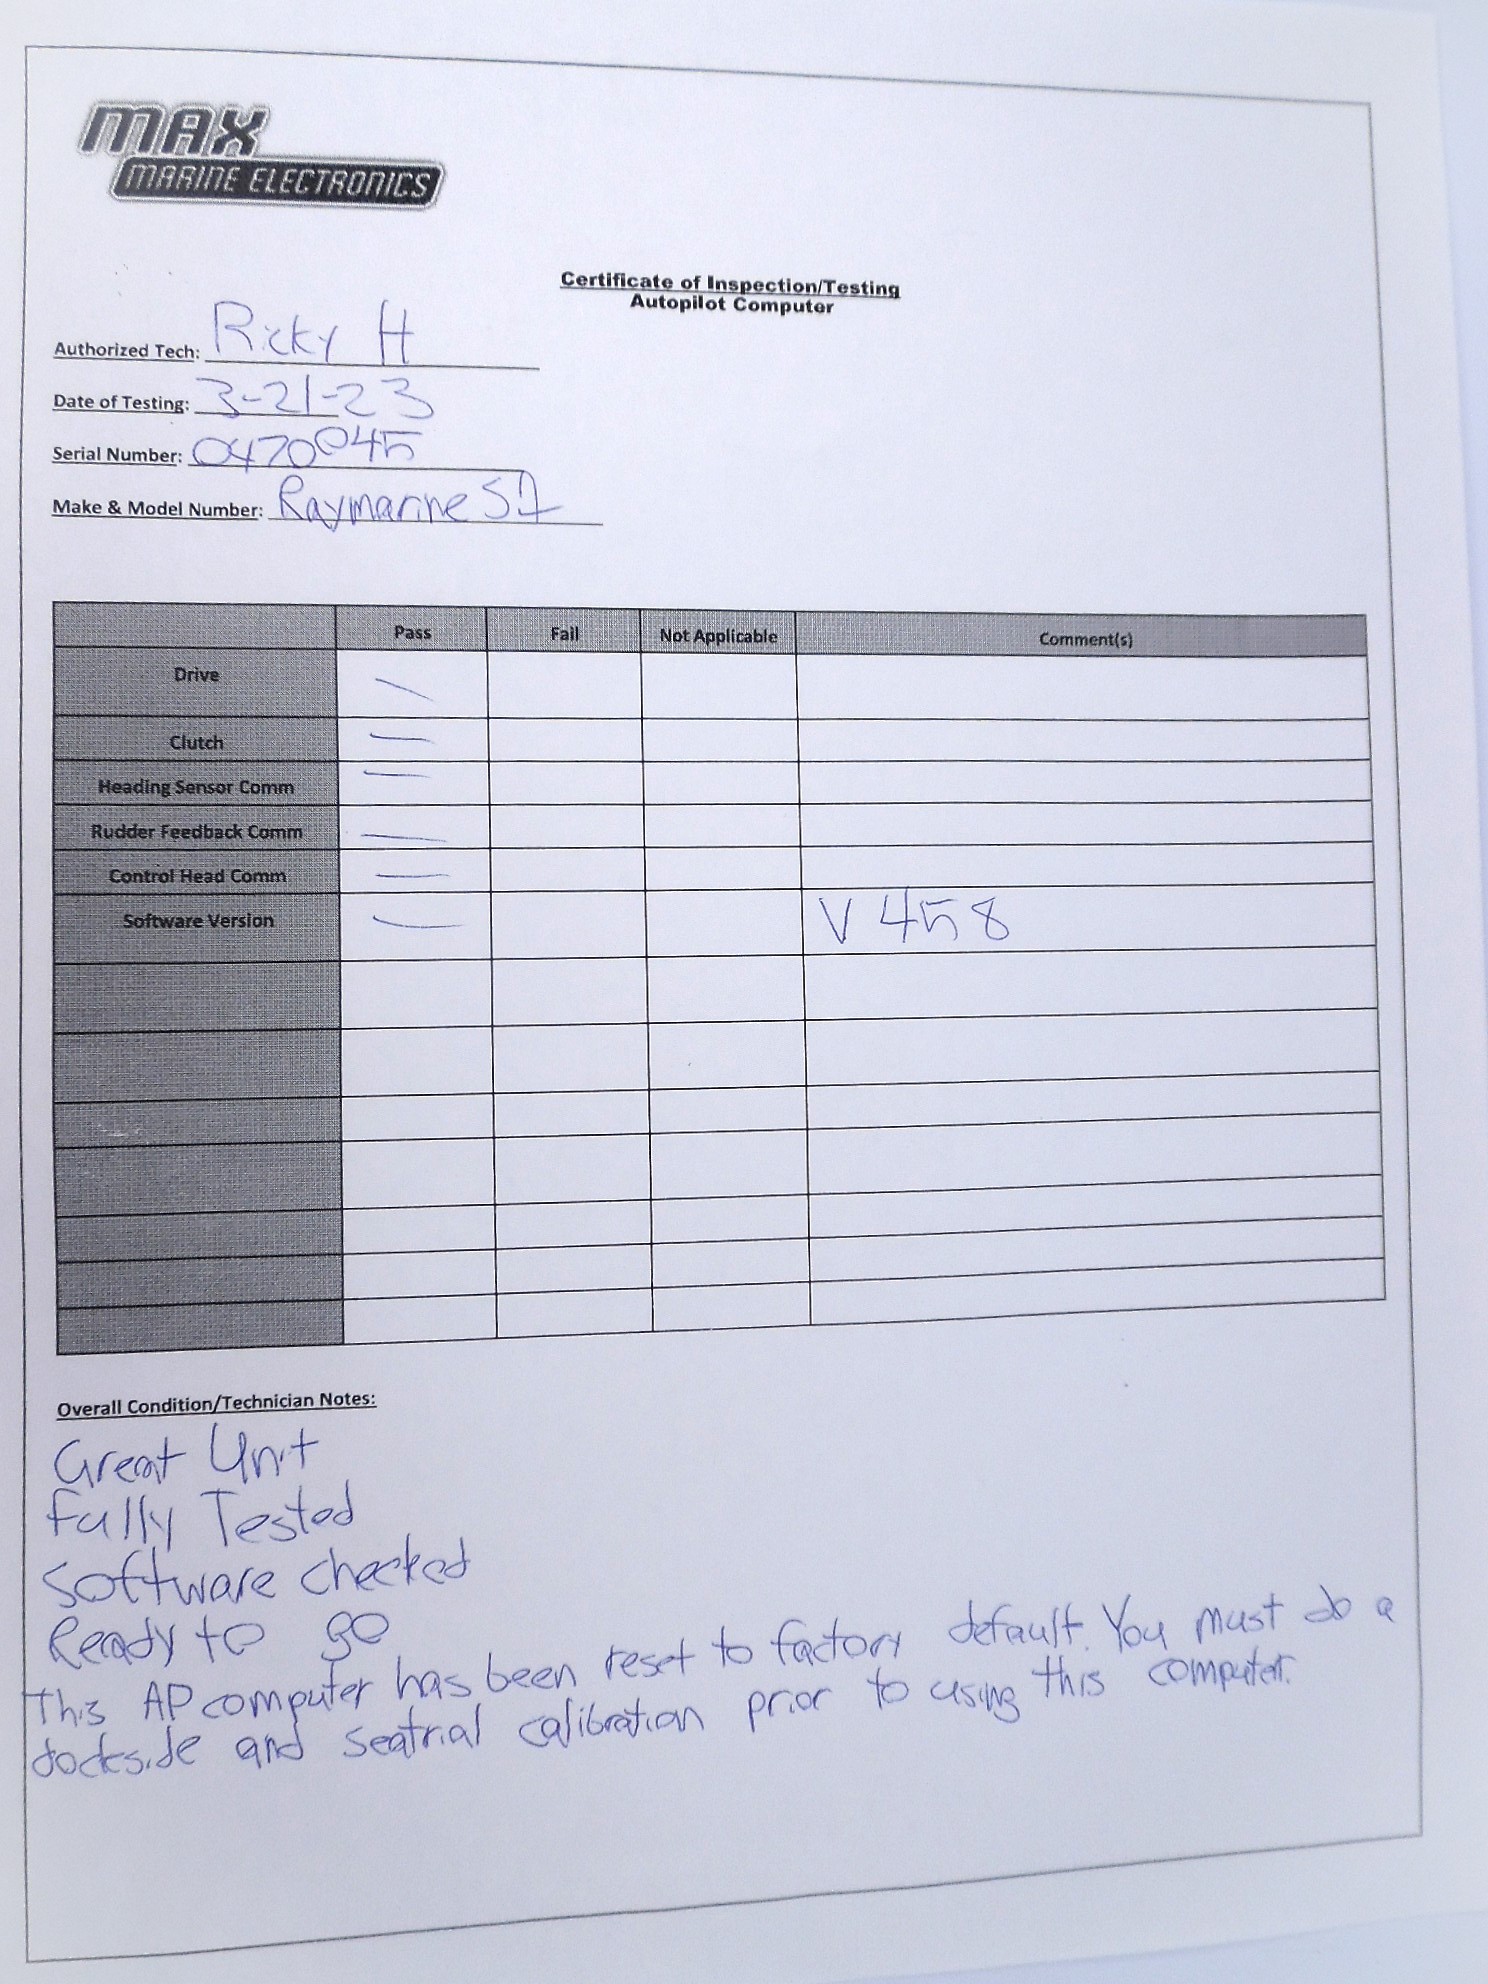 MAX
MARINE ELECTRONICS
Certificate of Inspection/Testing
Autopilot Computer
Authorized Tech: Ricky H
Date of Testing: 3-21-23
Serial Number: 0470045
Make & Model Number: Raymarine S1
Pass Fail Not Applicable Comment(s)
Drive
Clutch
Heading Sensor Comm
Rudder Feedback Comm
Control Head Comm
Software Version V 458
Overall Condition/Technician Notes:
Great Unit
Fully Tested
Software checked
Ready to go
This AP computer has been reset to factory default. You must do a
dockside and seatrial calibration prior to using this computer.